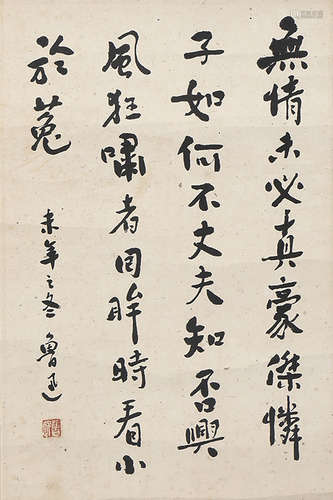 無情未必真豪傑憐
子如何不丈夫知否興
風狂嘯者回眸時看小
於菟
未年之冬 魯迅